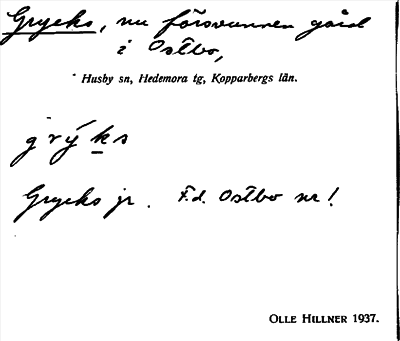 Grycks, nu försvunnen gård
i Ostbo,
Husby sn, Hedemora tg, Kopparbergs län.
grýks
Grycks jr. F.d. Ostbo nr !
OLLE HILLNER 1937.